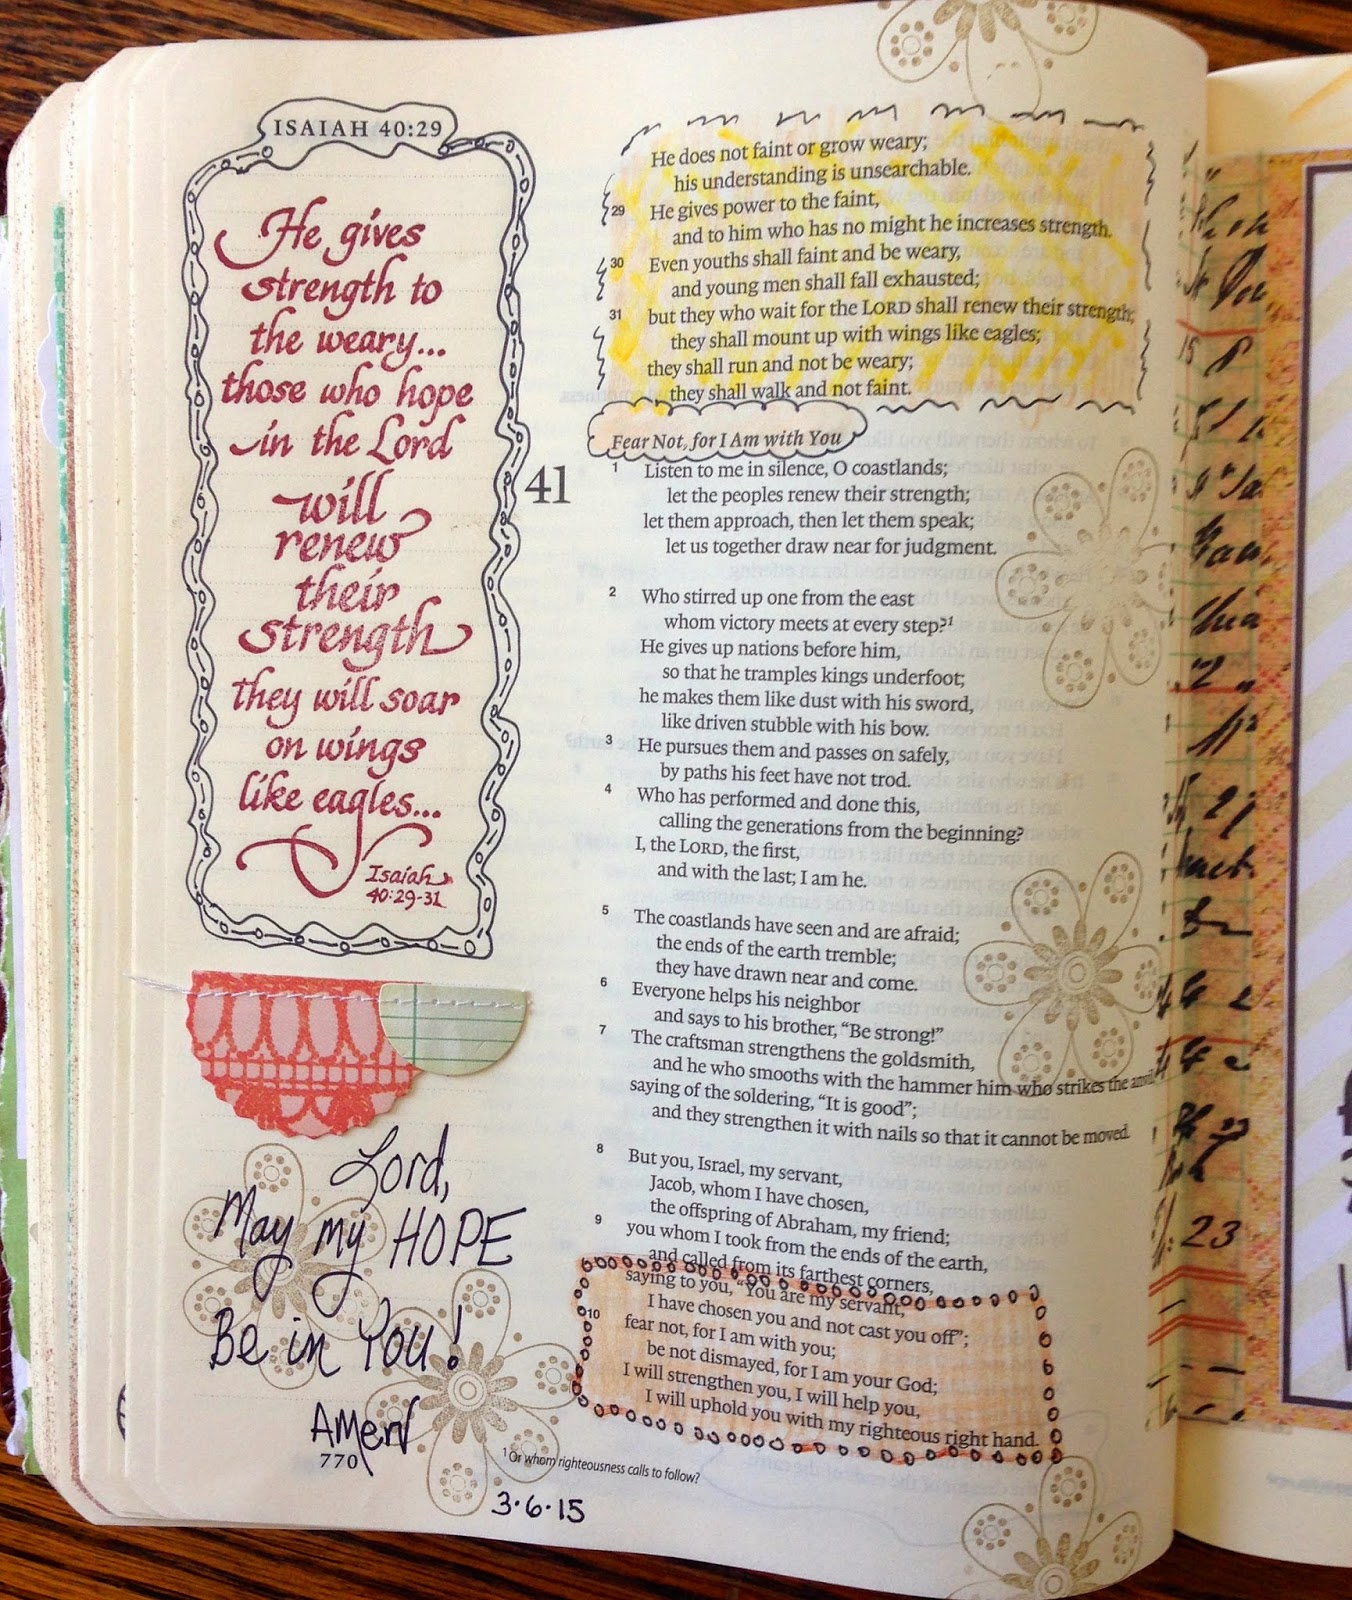 ISAIAH 40:29
He gives
strength to
the weary...
those who hope
in the Lord
will
renew
their
strength
they will soar
on wings
like eagles...
Isaiah
40:29-31
Lord,
May my HOPE
Be in You!
AMen
770
3·6·15
He does not faint or grow weary;
his understanding is unsearchable.
29 He gives power to the faint,
and to him who has no might he increases strength.
30 Even youths shall faint and be weary,
and young men shall fall exhausted;
31 but they who wait for the LORD shall renew their strength;
they shall mount up with wings like eagles;
they shall run and not be weary;
they shall walk and not faint.
Fear Not, for I Am with You
41
1 Listen to me in silence, O coastlands;
let the peoples renew their strength;
let them approach, then let them speak;
let us together draw near for judgment.
2 Who stirred up one from the east
whom victory meets at every step?¹
He gives up nations before him,
so that he tramples kings underfoot;
he makes them like dust with his sword,
like driven stubble with his bow.
3 He pursues them and passes on safely,
by paths his feet have not trod.
4 Who has performed and done this,
calling the generations from the beginning?
I, the LORD, the first,
and with the last; I am he.
5 The coastlands have seen and are afraid;
the ends of the earth tremble;
they have drawn near and come.
6 Everyone helps his neighbor
and says to his brother, “Be strong!”
7 The craftsman strengthens the goldsmith,
and he who smooths with the hammer him who strikes the anvil,
saying of the soldering, “It is good”;
and they strengthen it with nails so that it cannot be moved.
8 But you, Israel, my servant,
Jacob, whom I have chosen,
the offspring of Abraham, my friend;
9 you whom I took from the ends of the earth,
and called from its farthest corners,
saying to you, “You are my servant,
I have chosen you and not cast you off”;
10 fear not, for I am with you;
be not dismayed, for I am your God;
I will strengthen you, I will help you,
I will uphold you with my righteous right hand.
¹ Or whom righteousness calls to follow?
23